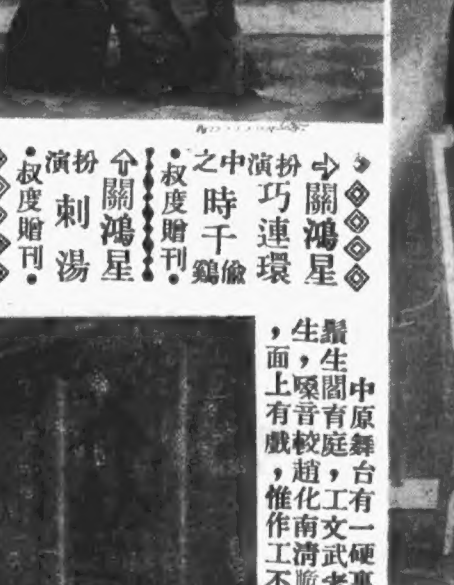 關鴻星
扮演巧連環
中之時千偸鷄
•叔度贈刊•
關鴻星
扮演刺湯
•叔度贈刊•
中原舞台有一硬裏
鬚生閻育庭，工文武老
生，嗓音較趙化南清
，面上有戲，惟作工不